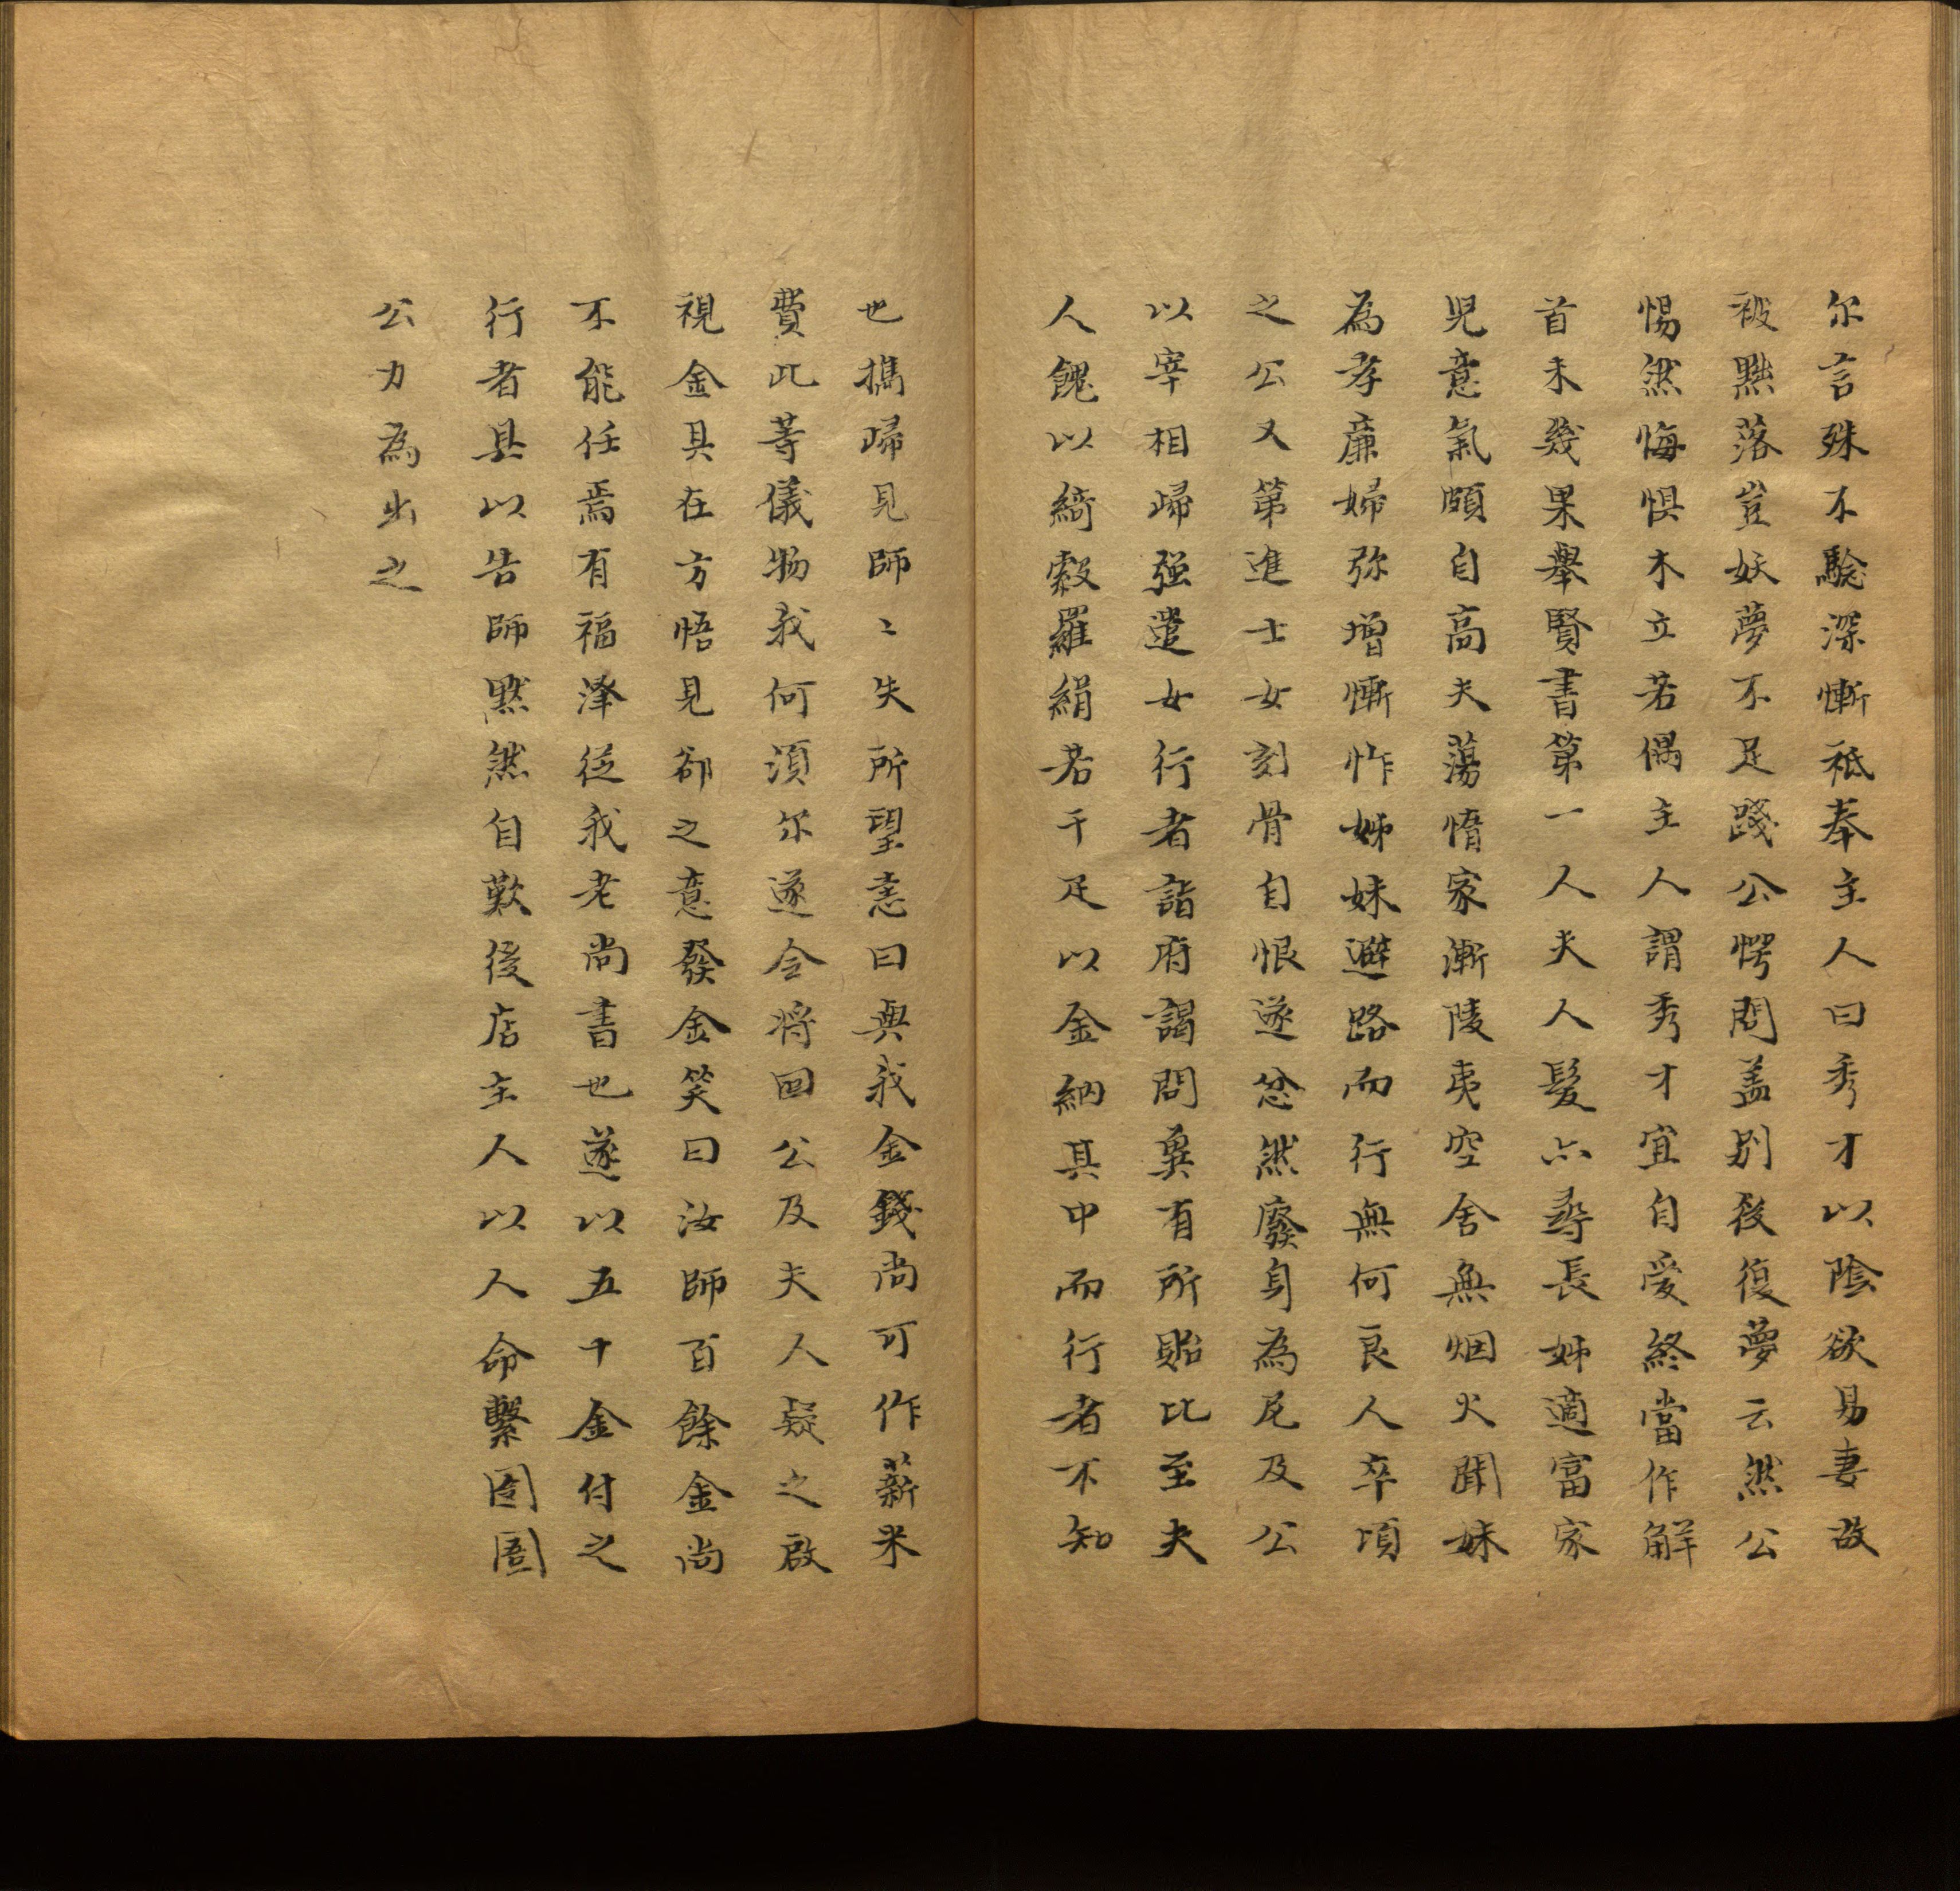 尔言殊不驗深慚祗奉主人曰秀才以陰欲易妻故
被黜落豈妖夢不足踐公愕問盖別後復夢云然公
惕然悔惧木立若偶主人謂秀才宜自愛終當作解
首未幾果舉賢書第一人夫人髮亦尋長姊適富家
児意氣頗自高夫蕩惰家漸陵夷空舍無烟火聞妹
為孝廉婦弥增慚怍姊妹避路而行無何良人卒頃
之公又第進士女刻骨自恨遂忿然廢身為尼及公
以宰相歸强遣女行者詣府謁問兾有所貽比至夫
人餽以綺縠羅絹若干疋以金納其中而行者不知
也攜歸見師〻失所望恚曰與我金錢尚可作薪米
費此等儀物我何湏尔遂令将回公及夫人疑之啟
視金具在方悟見卻之意發金笑曰汝師百餘金尚
不能任焉有福澤従我老尚書也遂以五十金付之
行者具以告師黙然自歎後店主人以人命繫囹圄
公力為出之